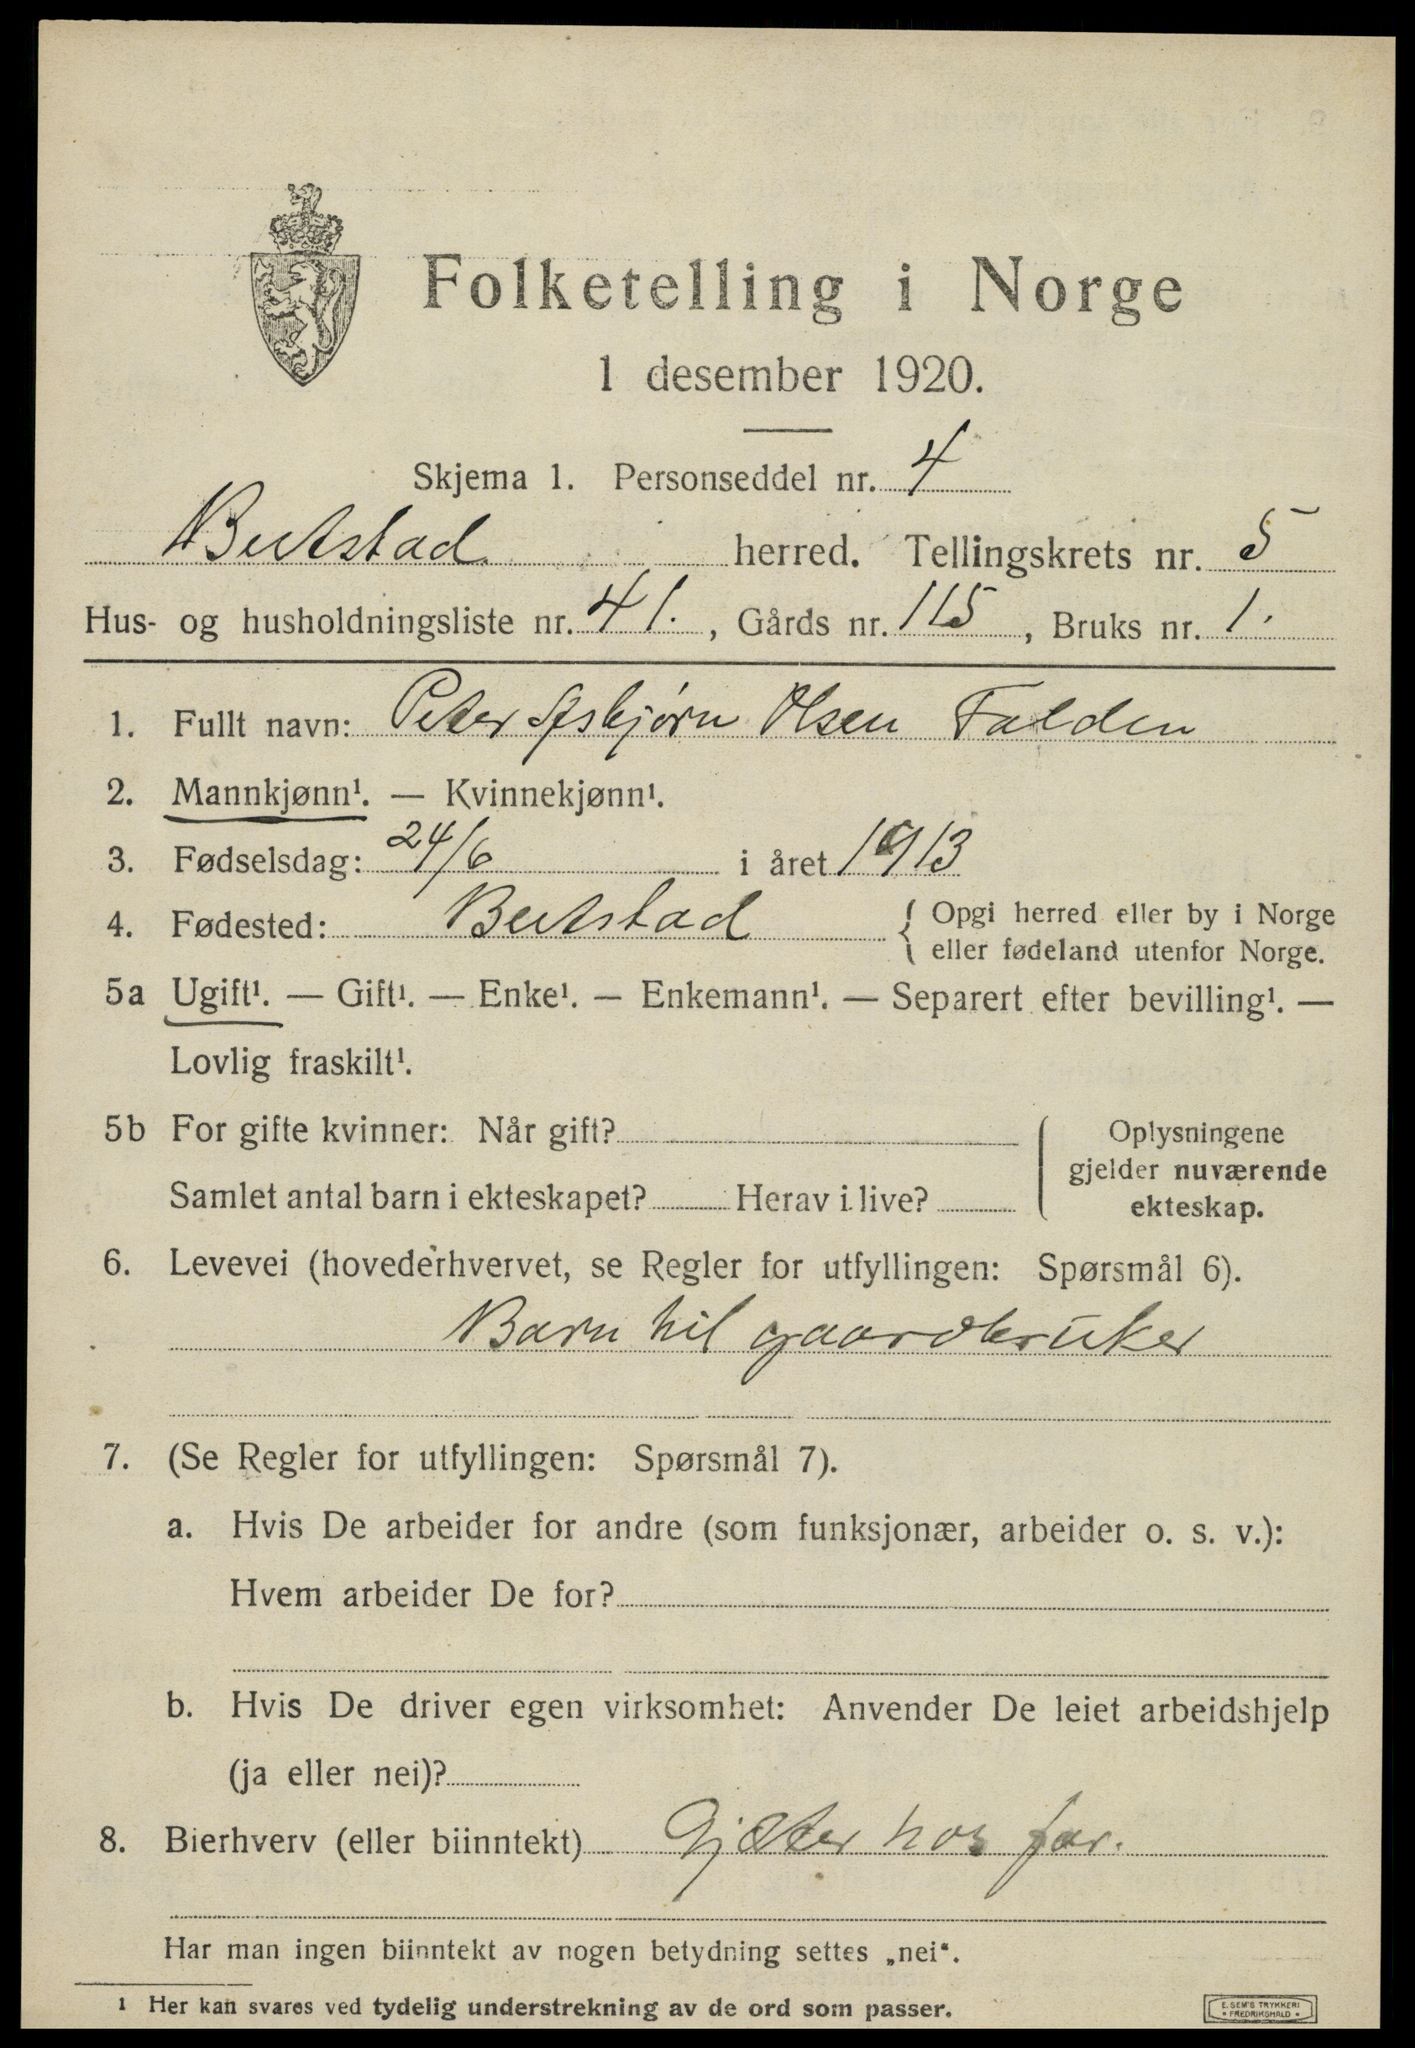 Folketelling i Norge
1 desember 1920.
Skjema 1. Personseddel nr. 4
Beitstad herred. Tellingskrets nr. 5
Hus- og husholdningsliste nr. 41. , Gårds nr. 115 , Bruks nr. 1.
1. Fullt navn: Peter Asbjørn Olsen Falden
2. Mannkjønn¹. — Kvinnekjønn¹.
3. Fødselsdag: 24/6 i året 1913
4. Fødested: Beitstad { Opgi herred eller by i Norge
eller fødeland utenfor Norge.
5a Ugift¹. — Gift¹. — Enke¹. — Enkemann¹. — Separert efter bevilling¹. —
Lovlig fraskilt¹.
5b For gifte kvinner: Når gift?
Samlet antal barn i ekteskapet? Herav i live?
Oplysningene
gjelder nuværende
ekteskap.
6. Levevei (hovederhvervet, se Regler for utfyllingen: Spørsmål 6).
Barn til gaardbruker
7. (Se Regler for utfyllingen: Spørsmål 7).
a. Hvis De arbeider for andre (som funksjonær, arbeider o. s. v.):
Hvem arbeider De for?
b. Hvis De driver egen virksomhet: Anvender De leiet arbeidshjelp
(ja eller nei)?
8. Bierhverv (eller biinntekt) Gjæter hos far.
Har man ingen biinntekt av nogen betydning settes „nei“.
1 Her kan svares ved tydelig understrekning av de ord som passer.
E. SEM'S TRYKKERI
• FREDRIKSHALD •